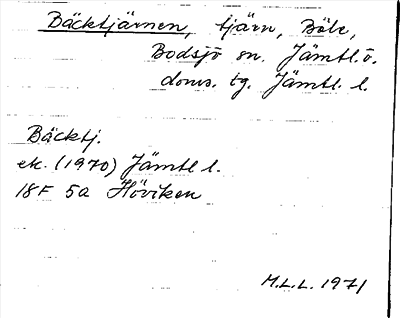 Bäcktjärnen, tjärn, Böle,
Bodsjö sn. Jämtl. ö.
doms. tg. Jämtl. l.
Bäcktj.
ek. (1970) Jämtl l.
18F 5a Höviken
M.L.L. 1971